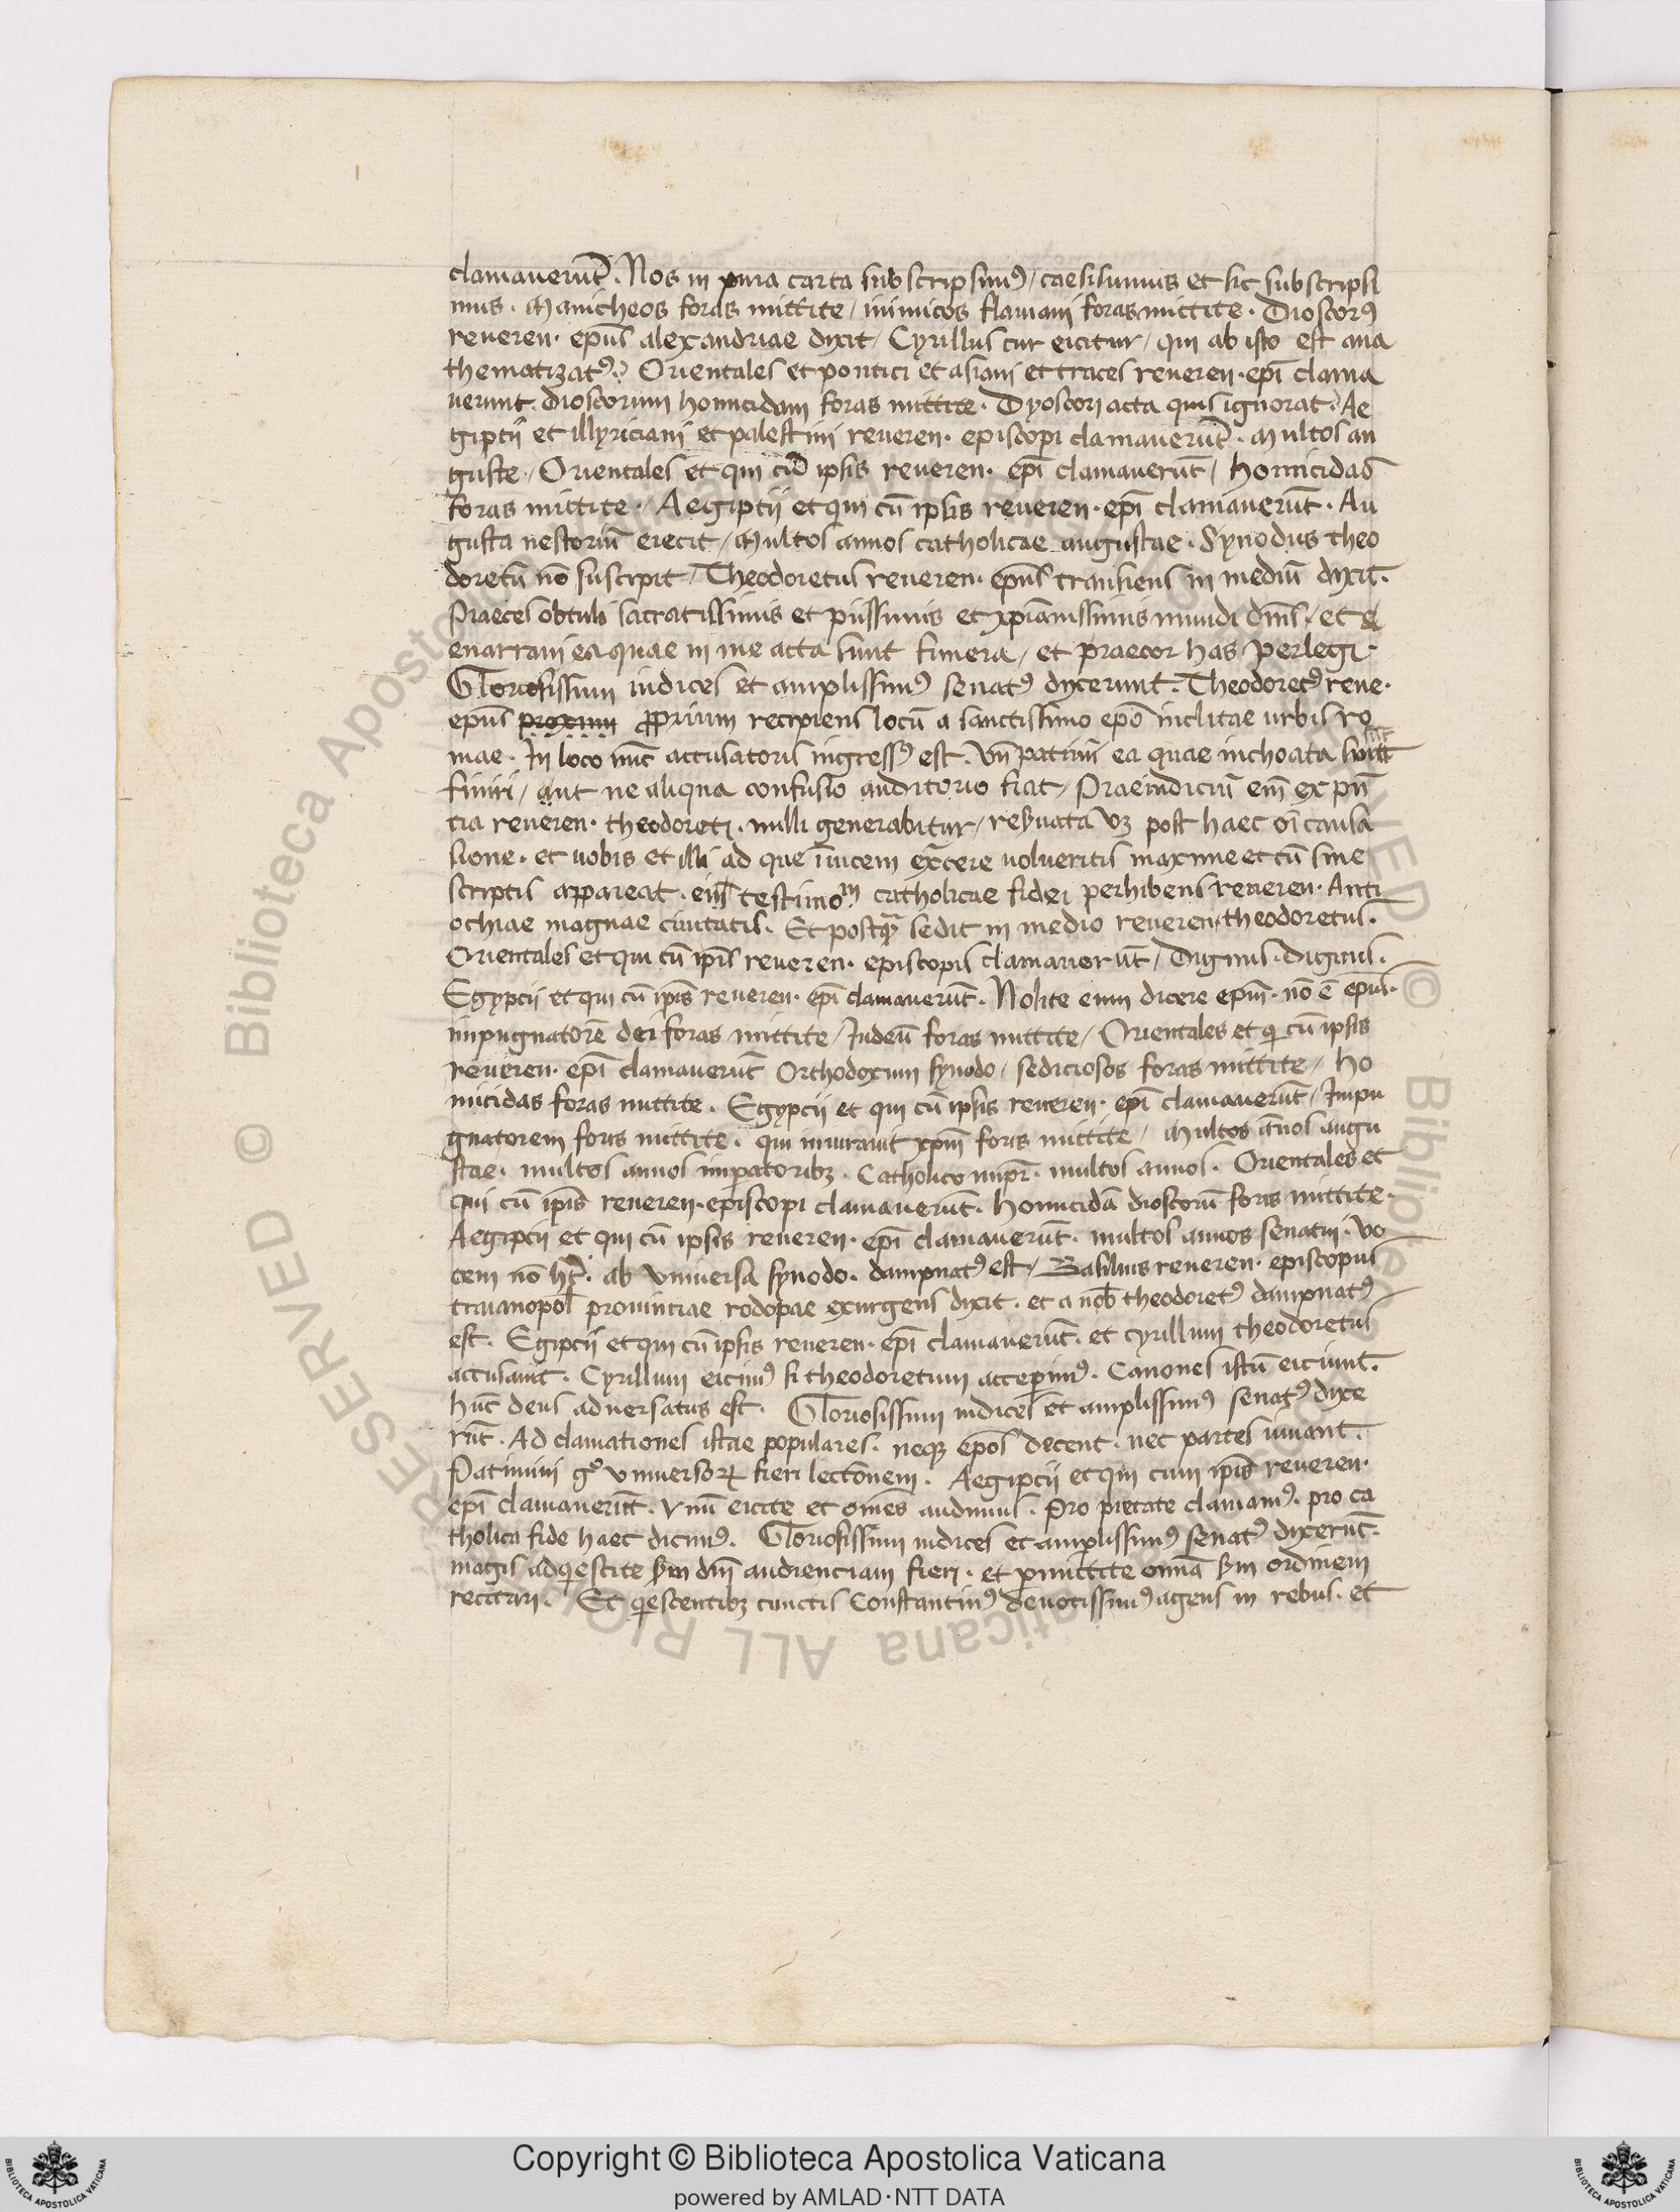 clamauerūt. Nos in pura carta subscripsimꝰ / caesi sumus et sic subscripsi
mus. Manicheos foras mittite / inimicos flauiani foras mittite. Dioscorꝰ
reueren. epūs alexandriae dixit / Cyrillus cur eicitur / qui ab isto est ana
thematizatꝰ? Orientales et pontici et asiani et traces reueren. epī clama
uerunt. dioscorum homicidam foras mittite. Dyoscori acta quis ignorat? Ae
giptii et illyriciani et palestini reueren. episcopi clamauerūt. Multos an
guste / Orientales et qui cū ipsis reueren. epī clamauerūt / homicidas
foras mittite. / Aegiptii et qui cū ipsis reueren. epī clamauerūt. Au
gusta nestoriū eiecit / Multos annos catholicae augustae. Synodus theo
doretū nō suscipit / Theodoretus reueren. epūs transiens in mediū dixit.
Praeces obtuli sacratissimis et piissimis et xpīanissimis mundi dnīs / et e
enarraui ea quae in me acta sunt funera / et praecor has perlegi.
Gloriosissimi iudices et amplissimꝰ senatꝰ dixerunt. Theodoretꝰ reue.
epūs proxim ꝓprium recipiens locū a sanctissimo epō inclitae urbis ro
mae. In loco nūc accusatoris ingressꝰ est. Vn̄ patimī ea quae inchoata sunt
finiri / aut ne aliqua confusio auditorio fiat / Praeiudiciū em̄ ex pn̄
tia reueren. theodoreti. nulli generabitur / reseruata vꝫ post haec oī causa
sione. et uobis et illi ad que inuicem exercere uolueritis maxime et cū sine
scriptis appareat. eius testimom̄ catholicae fidei perhibens reueren. Anti
ochiae magnae ciuitatis. Et postquā sedit in medio reueren. theodoretus.
Orientales et qui cū ipīs reueren. episcopis clamauerūt / Dignus. dignus.
Egypcii et qui cū ipīs reueren. epī clamauerūt. Nolite eum dicere epm̄. nō ē epūs.
impugnatorē dei foras mittite / Iudeū foras mittite / Orientales et qi cū ipsis
reueren. epī clamauerūt Orthodoxum synodo / sediciosos foras mittite / ho
micidas foras mittite. Egypcii et qui cū ipsis reueren. epī clamauerūt / Impu
gnatorem foras mittite. qui iniurauit xpm̄ foras mittite / Multos annos augu
stae. multos annos imꝑatoribꝫ. Catholico impr̄. multos annos. Orientales et
qui cū ipīs reueren. episcopi clamauerūt. homicidā dioscorū foras mittite.
Aegipcii et qui cū ipsis reueren. epī clamauerūt. multos annos senatui. Vo
cem nō ht̄. ab vniuersa synodo. dampnatꝰ est / Basilius reueren. episcopus
traianopol̄ prouinciae rodopae exurgens dixit. et a nob̄ theodoretꝰ dampnatꝰ
est. Egipcii et qui cū ipsis reueren. epī clamauerūt. et cyrillum theodoretus
accusauit. Cyrillum eicimꝰ si theodoretum acceperimꝰ. Canones istū eiciunt.
hūc deus aduersatus est. Gloriosissimi iudices et amplissimꝰ senatꝰ dixe
rūt. Ad clamationes istae populares. neqꝫ epōs decent. nec partes iuuant.
Patimini gͦ vniuersoꝝ fieri lectionem. Aegipcii et qui cum ipīs reueren.
epī clamauerūt. Vnū eicite et omēs audimus. Pro pietate clamamꝰ. pro ca
tholica fide haec dicimꝰ. Gloriosissimi iudices et amplissimꝰ senatꝰ dixerūt.
magis adqiescite sm̄ dm̄ audienciam fieri. et ꝑmittite omīa sm̄ ordinem
recitari. Et qiescentibꝫ cunctis Constantinꝰ deuotissimꝰ agens in rebus. et
© Biblioteca Apostolica Vaticana ALL RIGHTS RESERVED
Copyright © Biblioteca Apostolica Vaticana
powered by AMLAD·NTT DATA
BIBLIOTECA APOSTOLICA VATICANA
BIBLIOTECA APOSTOLICA VATICANA